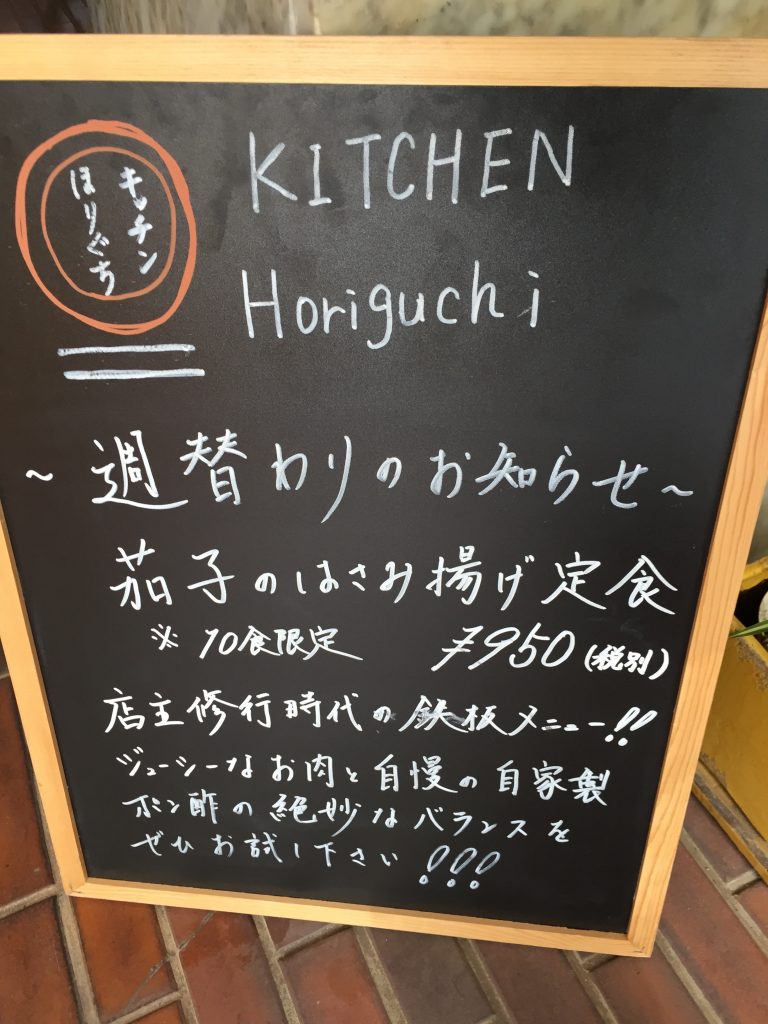 キッチン
ほりぐち
KITCHEN
Horiguchi
~週替わりのお知らせ~
茄子のはさみ揚げ定食
※10食限定 ¥950(税別)
店主修行時代の鉄板メニュー!!
ジューシーなお肉と自慢の自家製
ポン酢の絶妙なバランスを
ぜひお試し下さい!!!